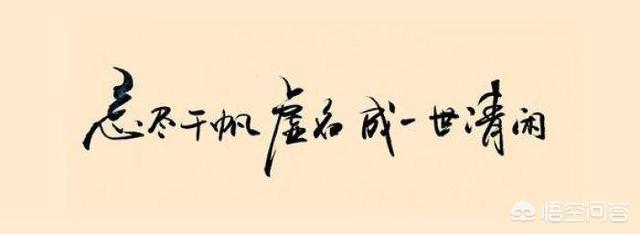 忘尽千帆虚名成一世清闲
悟空问答